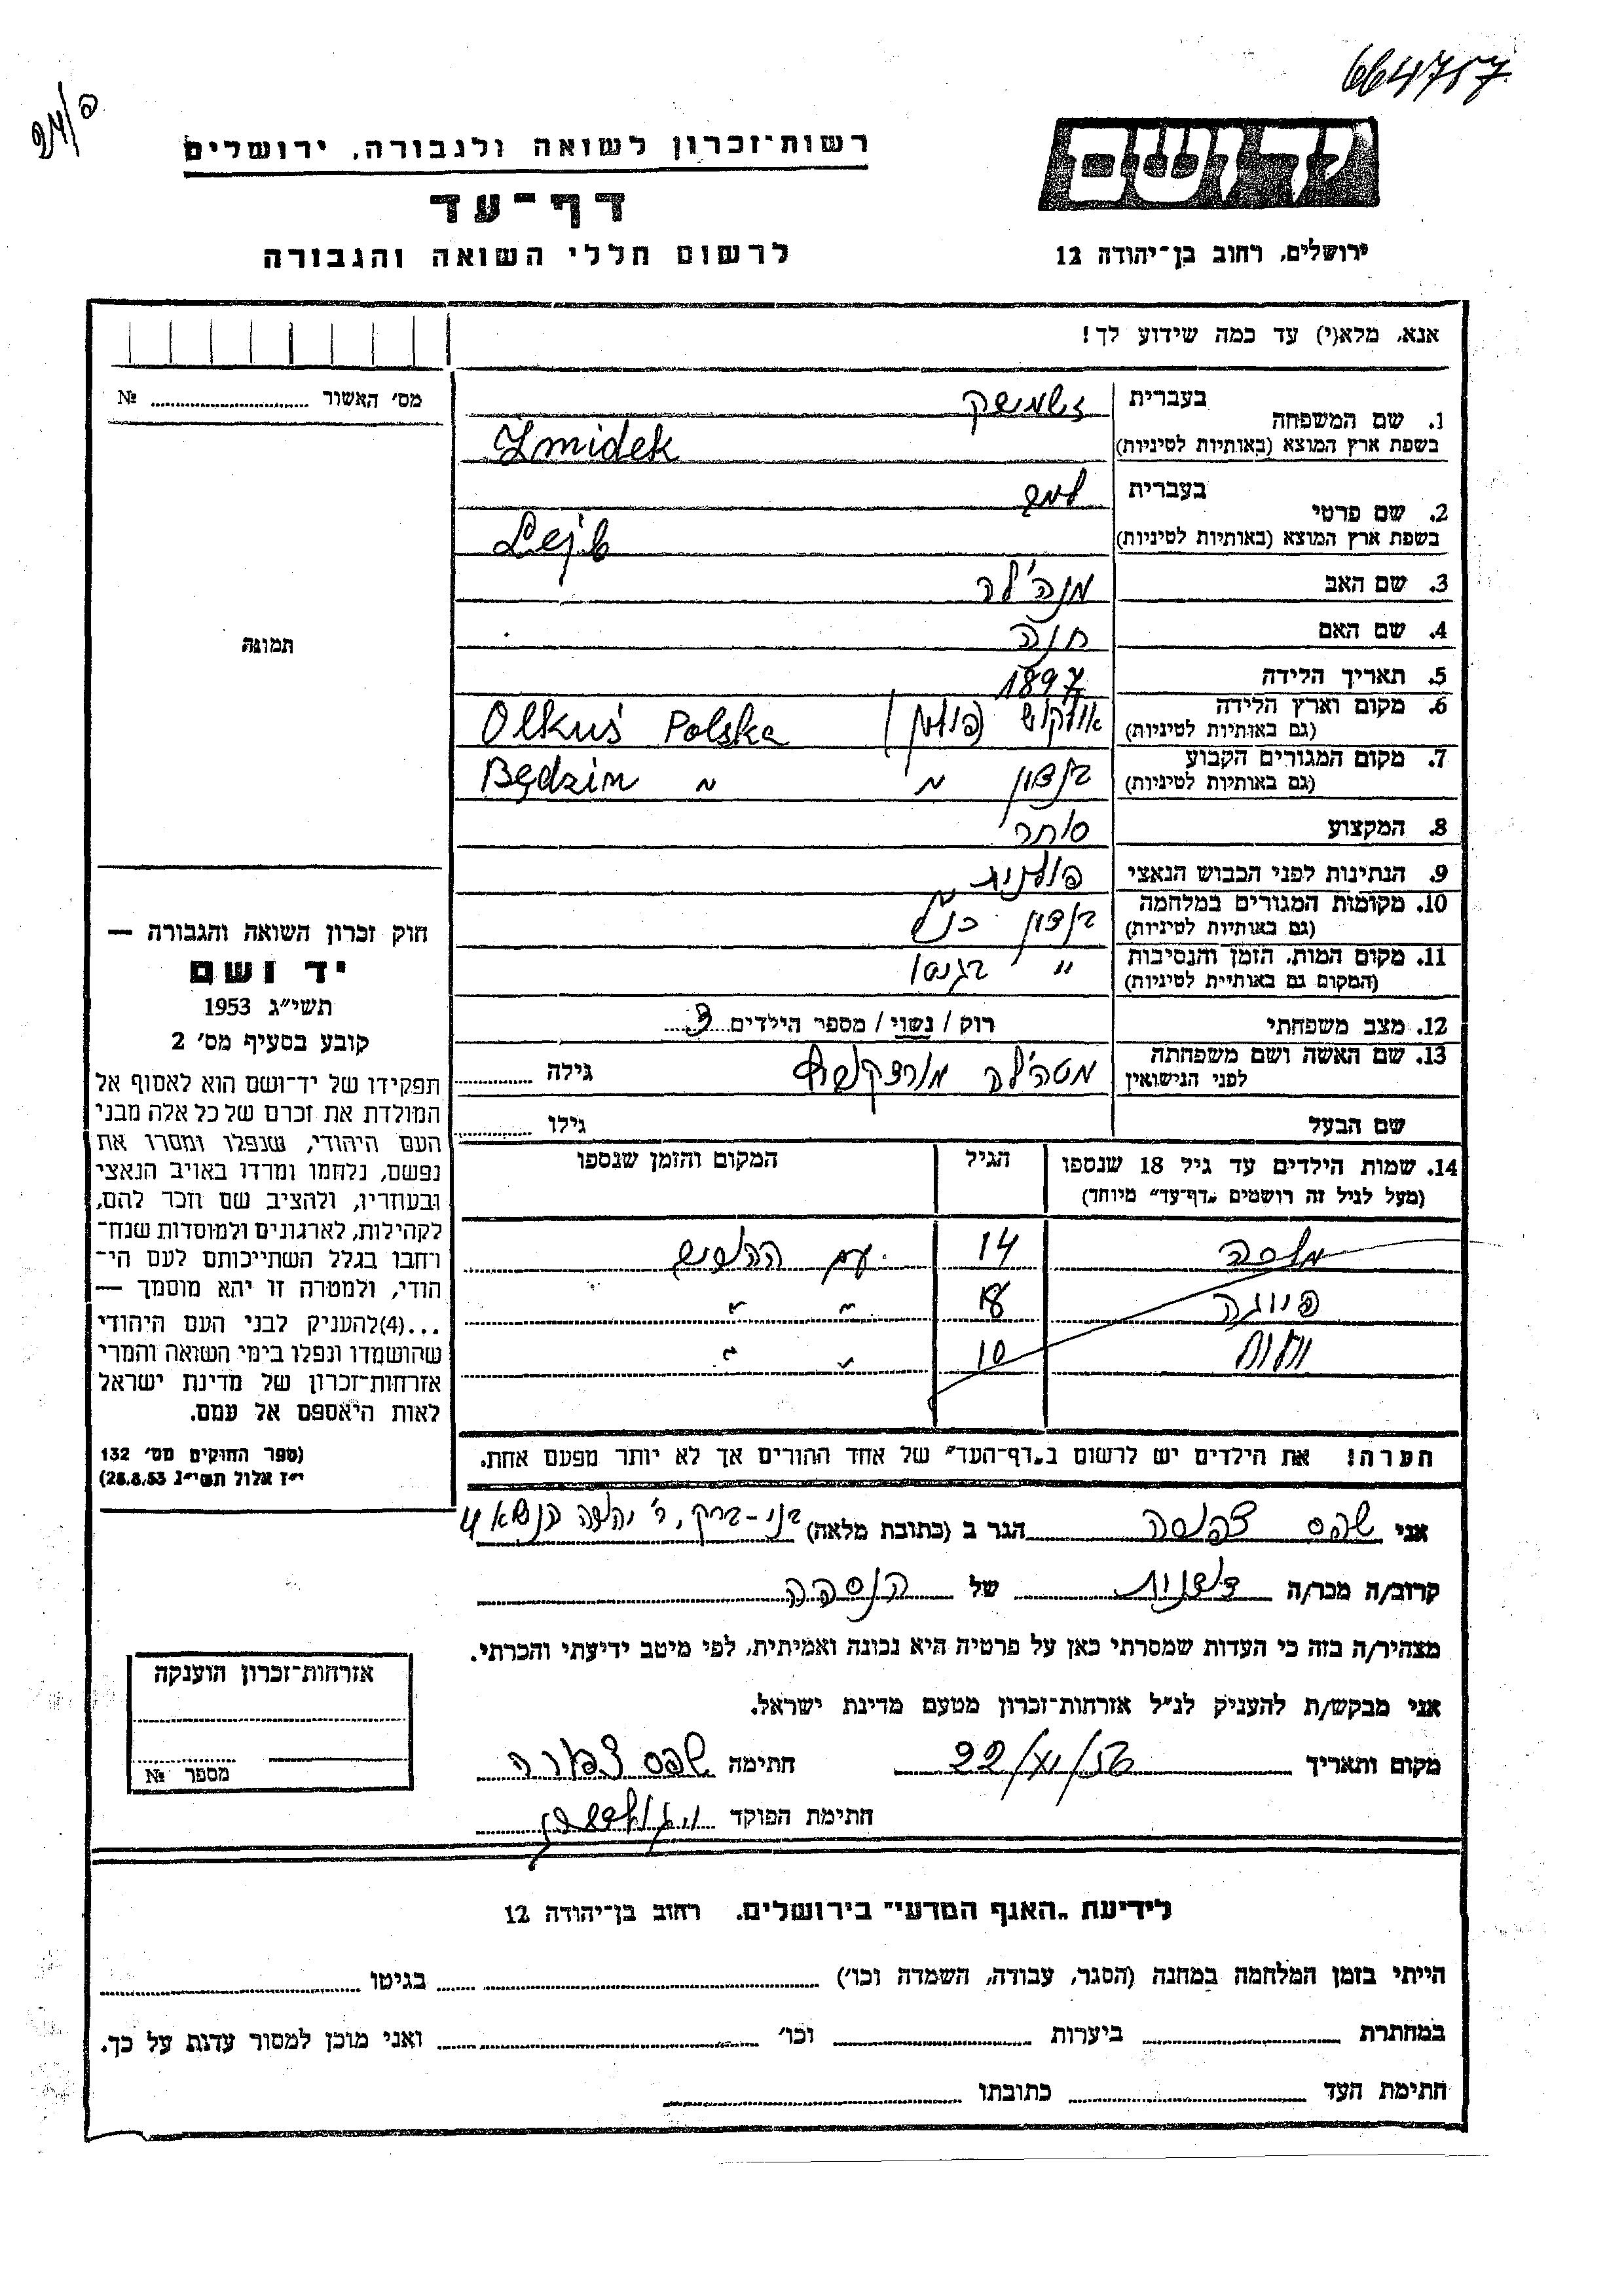 664757
רשות־זכרון לשואה ולגבורה, ירושלים
דף־עד
לרשום חללי השואה והגבורה
יד ושם
ירושלים, רחוב בן־יהודה 12
אנא, מלא(י) עד כמה שידוע לך!
מס׳ האשור № 
1. שם המשפחה
בעברית
בשפת ארץ המוצא (באותיות לטיניות)
Żmidek
2. שם פרטי
בעברית
בשפת ארץ המוצא (באותיות לטיניות)
Lejb
3. שם האב
4. שם האם חנה
5. תאריך הלידה 1897
6. מקום וארץ הלידה
(גם באותיות לטיניות)
אולקוש (פולין) Olkuś Polska
7. מקום המגורים הקבוע
(גם באותיות לטיניות)
בנדזין " Będzin " "
8. המקצוע סוחר
9. הנתינות לפני הכבוש הנאצי פולנית
10. מקומות המגורים במלחמה
(גם באותיות לטיניות)
בנדזין כנ״ל
11. מקום המות, הזמן והנסיבות
(המקום גם באותיית לטיניות)
" בגטו
12. מצב משפחתי רוק / נשוי / מספר הילדים 3
13. שם האשה ושם משפחתה
לפני הנישואין
גילה
שם הבעל גילו
14. שמות הילדים עד גיל 18 שנספו
(מעל לגיל זה רושמים „דף־עד״ מיוחד)
הגיל
המקום והזמן שנספו
14 עם
18 " "
10 " "
הערה! את הילדים יש לרשום ב„דף־העד״ של אחד ההורים אך לא יותר מפעם אחת.
תמונה
חוק זכרון השואה והגבורה —
יד ושם
תשי״ג 1953
קובע בסעיף מס׳ 2
תפקידו של יד־ושם הוא לאסוף אל
המולדת את זכרם של כל אלה מבני
העם היהודי, שנפלו ומסרו את
נפשם, נלחמו ומרדו באויב הנאצי
ובעוזריו, ולהציב שם וזכר להם,
לקהילות, לארגונים ולמוסדות שנח־
רחבו בגלל השתייכותם לעם הי־
הודי, ולמטרה זו יהא מוסמך —
...(4)להעניק לבני העם היהודי
שהושמדו ונפלו בימי השואה והמרי
אזרחות־זכרון של מדינת ישראל
לאות היאספם אל עמם.
(ספר החוקים מס׳ 132
י״ז אלול תשי״ג 28.8.53)
אני הגר ב (כתובת מלאה) בני-ברק, ר׳ יהודה הנשיא 4
קרוב/ה מכר/ה של הנספה
מצהיר/ה בזה כי העדות שמסרתי כאן על פרטיה היא נכונה ואמיתית, לפי מיטב ידיעתי והכרתי.
אני מבקש/ת להעניק לנ״ל אזרחות־זכרון מטעם מדינת ישראל.
מקום ותאריך 22/XI/56 חתימה
חתימת הפוקד
אזרחות־זכרון הוענקה
מספר №
לידיעת „האגף המדעי״ בירושלים, רחוב בן־יהודה 12
הייתי בזמן המלחמה במחנה (הסגר, עבודה, השמדה וכו׳) בגיטו
במחתרת ביערות וכו׳ ואני מוכן למסור עדות על כך.
חתימת העד כתובתו